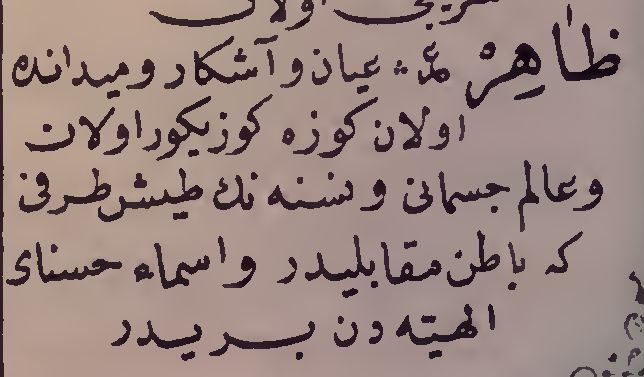 اولان
ظَاهِرْ عر: عيان و آشكار و ميدانده
اولان كوزه كوزيكور اولان
و عالم جسمانى و نسنه نك طيش طرفى
كه باطن مقابليدر و اسماء حسناى
الهيّه دن بريدر